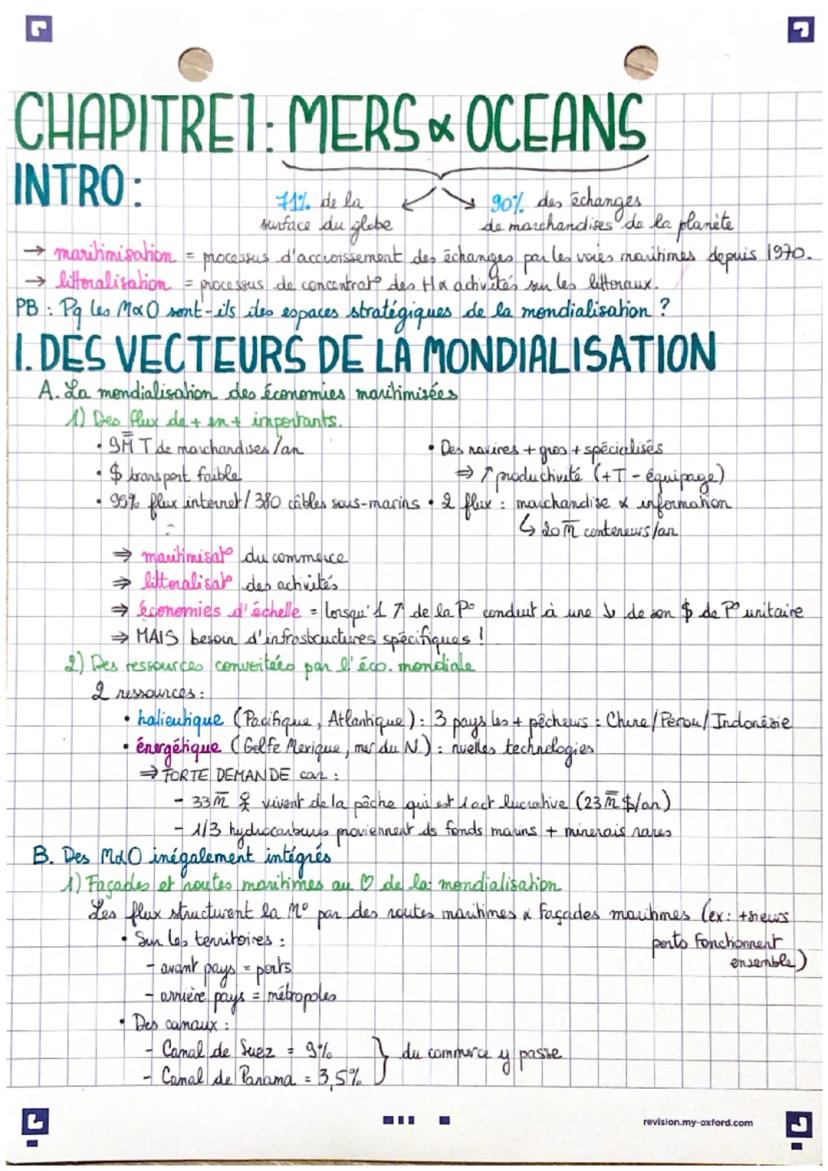 CHAPITRE 1 : MERS & OCEANS
INTRO :
71% de la surface du globe
90% des échanges de marchandises de la planète
→ maritimisation = processus d'accroissement des échanges par les voies maritimes depuis 1970.
→ littoralisation = processus de concentrat° des H & activités sur les littoraux.
PB : Pq les M&O sont-ils des espaces stratégiques de la mondialisation ?
I. DES VECTEURS DE LA MONDIALISATION
A. La mondialisation des économies maritimisées
1) Des flux de + en + importants.
• 9M T de marchandises /an
• $ transport faible
• 99% flux internet / 380 câbles sous-marins
• Des navires + gros + spécialisés
⇒ ↑ productivité (+T - équipage)
• 2 flux : marchandise & information
↳ 20 m conteneurs/an
⇒ maritimisat° du commerce
⇒ littoralisat° des activités
⇒ économies d'échelle = lorsqu'1 ↑ de la P° conduit à une ↓ de son $ de P° unitaire
⇒ MAIS besoin d'infrastructures spécifiques !
2) Des ressources convoitées par l'éco. mondiale
2 ressources :
• halieutique (Pacifique, Atlantique) : 3 pays les + pêcheurs : Chine / Pérou / Indonésie
• énergétique (Golfe Mexique, mer du N.) : nvelles technologies
⇒ FORTE DEMANDE car :
- 33 m vivent de la pêche qui est 1 act lucrative (23 m $/an)
- 1/3 hydrocarbures proviennent ds fonds marins + minerais rares
B. Des M&O inégalement intégrés
1) Façades et routes maritimes au ♡ de la mondialisation
Les flux structurent la M° par des routes maritimes & façades maritimes (ex : +sieurs ports fonctionnent ensemble)
• Sur les territoires :
- avant pays = ports
- arrière pays = métropoles
• Des canaux :
- Canal de Suez = 9%
- Canal de Panama = 3,5%
} du commerce y passe
revision.my-oxford.com